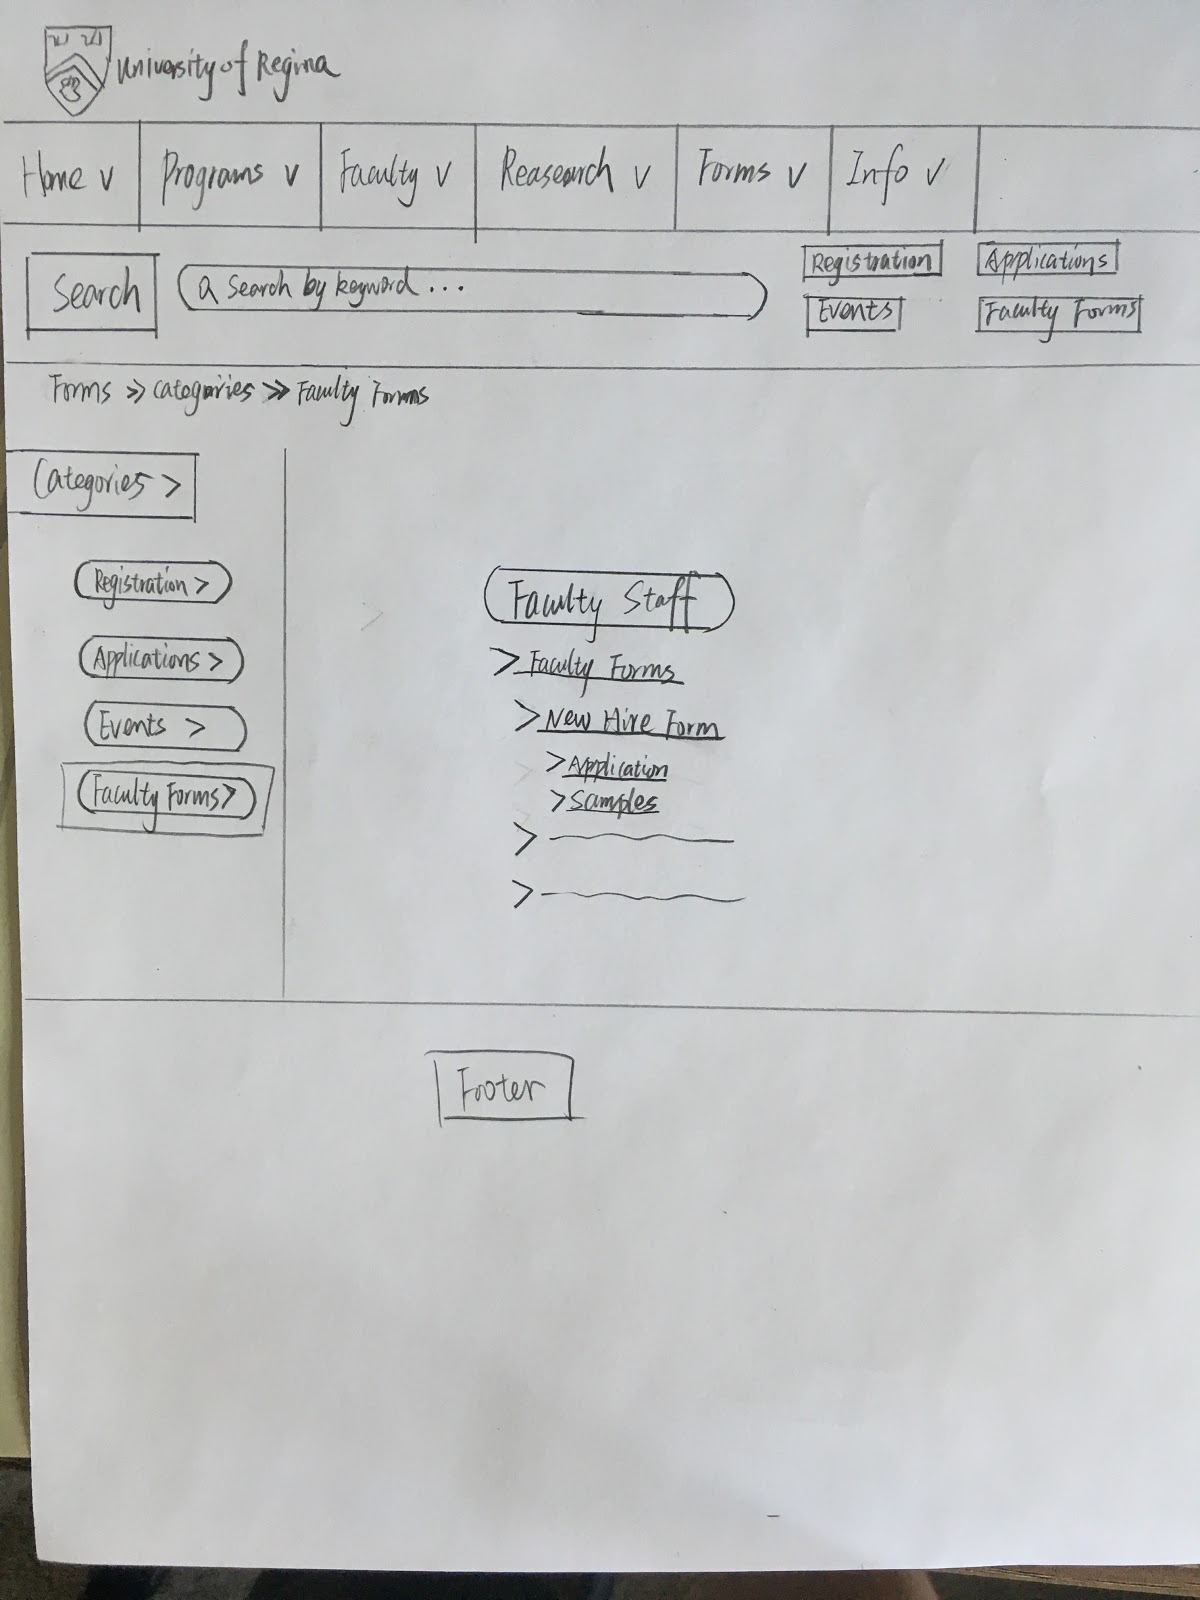 University of Regina
Home v Programs v Faculty v Reasearch v Forms v Info v
Search
Q Search by keyword ...
Registration Applications
Events Faculty Forms
Forms >> Categories >> Faculty Forms
Categories >
Registration >
Applications >
Events >
Faculty Forms >
Faculty Staff
> Faculty Forms
> New Hire Form
> Application
> Samples
>
>
Footer